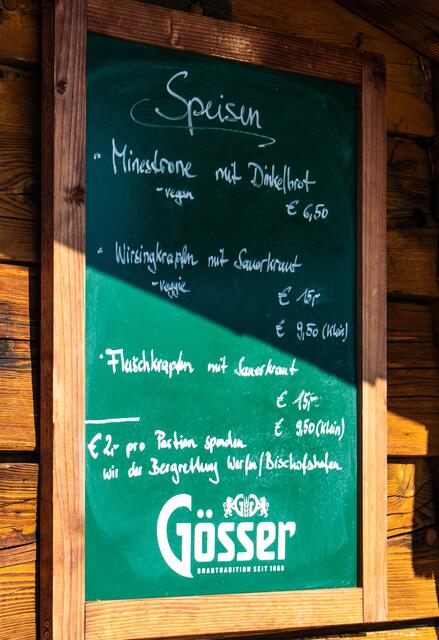 Speisen
Minestrone mit Dinkelbrot
- vegan
€ 6,50
Wirsingkrapfen mit Sauerkraut
- veggie
€ 15,-
€ 9,50 (Klein)
Fleischkrapfen mit Sauerkraut
€ 15,-
€ 9,50 (Klein)
€ 2,- pro Portion spenden
wir der Bergrettung Werfen/Bischofshofen
GG
Gösser
BRAUTRADITION SEIT 1860